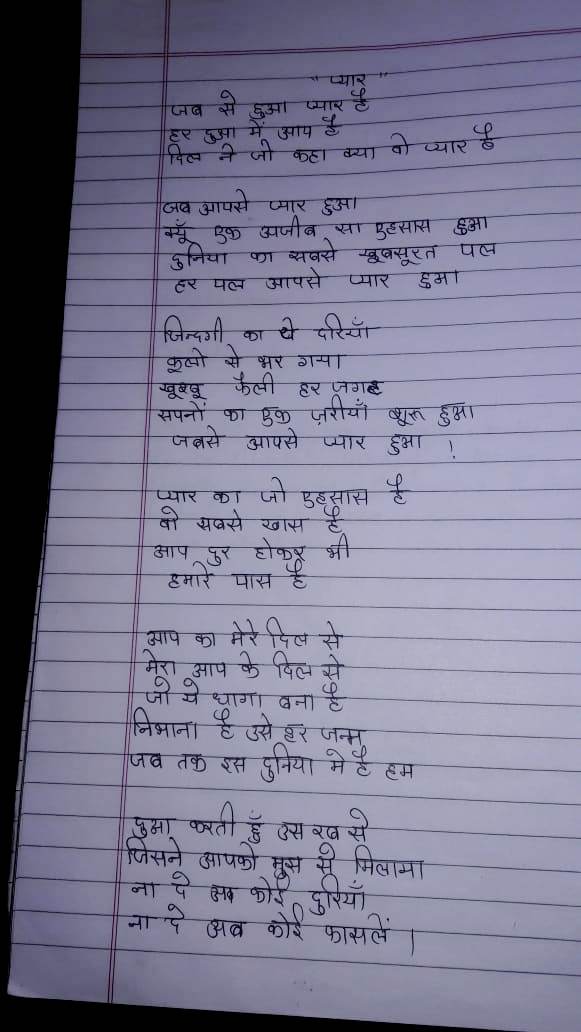 "प्यार"
जब से हुआ प्यार है
हर दुआ में आप है
दिल ने जो कहा क्या वो प्यार है
जब आपसे प्यार हुआ
क्यूँ एक अजीब सा एहसास हुआ
दुनिया का सबसे खूबसूरत पल
हर पल आपसे प्यार हुआ
जिन्दगी का ये दरियाँ
फूलो से भर गया
खूश्बू फैली हर जगह
सपनों का एक ज़रीयाँ शुरू हुआ
जबसे आपसे प्यार हुआ !
प्यार का जो एहसास है
वो सबसे खास है
आप दुर होकर भी
हमारे पास है
आप का मेरे दिल से
मेरा आप के दिल से
जो ये धागा बना है
निभाना है उसे हर जन्म
जब तक इस दुनिया मे है हम
दुआ करती हूँ उस रब से
जिसने आपको मुझ से मिलाया
ना दे अब कोई दुरियाँ
ना दे अब कोई फासलें |